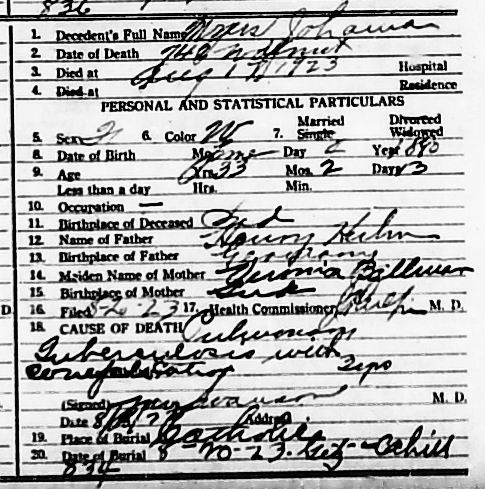 836
1. Decedent's Full Name Myers Johanna
2. Date of Death 748 Walnut
3. Died at Aug 17 1923 Hospital
4. Died at Residence
PERSONAL AND STATISTICAL PARTICULARS
5. Sex F 6. Color W 7. Married Single Divorced Widowed
8. Date of Birth Mo. June Day Year 1890
9. Age Yrs. 33 Mos. 2 Days 3
Less than a day Hrs. Min.
10. Occupation —
11. Birthplace of Deceased Ind
12. Name of Father Henry
13. Birthplace of Father Germany
14. Maiden Name of Mother Billman
15. Birthplace of Mother Ind
D. 16. Filed 8-20-23 17. Health Commissioner M. D.
18. CAUSE OF DEATH Pulmonary
Tuberculosis with
(Signed) M. D.
Date Address
19. Place of Burial Catholic
20. Date of Burial 8-20-23. Getz-Cahill
834